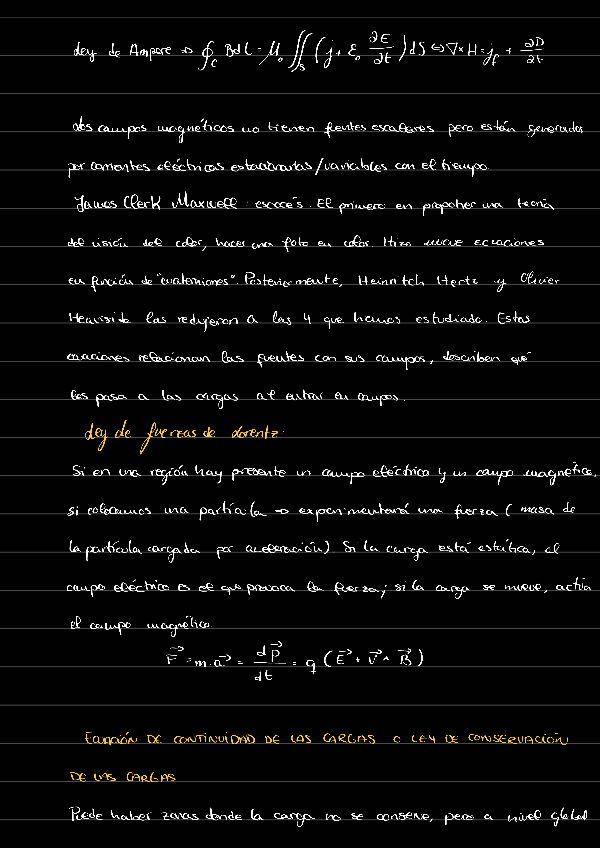 Ley de Ampere => ∮_C Bdl = μ₀ ∬_S (j + ε₀ ∂E/∂t) dS <=> ∇×H = j_f + ∂D/∂t
Los campos magnéticos no tienen fuentes escalares pero están generados
por corrientes eléctricas estacionarias/variables con el tiempo.
James Clerk Maxwell: escocés. El primero en proponer una teoría
del visión del color, hacer una foto en color. Hizo nueve ecuaciones
en función de "cuaterniones". Posteriormente, Heinritch Hertz y Olivier
Heaviside las redujeron a las 4 que hemos estudiado. Estas
ecuaciones relacionan las fuentes con sus campos, describen qué
les pasa a las cargas al entrar en campos.
Ley de fuerzas de Lorentz:
Si en una región hay presente un campo eléctrico y un campo magnético,
si colocamos una partícula -> experimentará una fuerza (masa de
la partícula cargada por aceleración) Si la carga está estática, el
campo eléctrico es el que provoca la fuerza; si la carga se mueve, actúa
el campo magnético.
F⃗ = m·a⃗ = dp⃗/dt = q (E⃗ + v⃗ ^ B⃗)
ECUACIÓN DE CONTINUIDAD DE LAS CARGAS O LEY DE CONSERVACIÓN
DE LAS CARGAS
Puede haber zonas donde la carga no se conserve, pero a nivel global